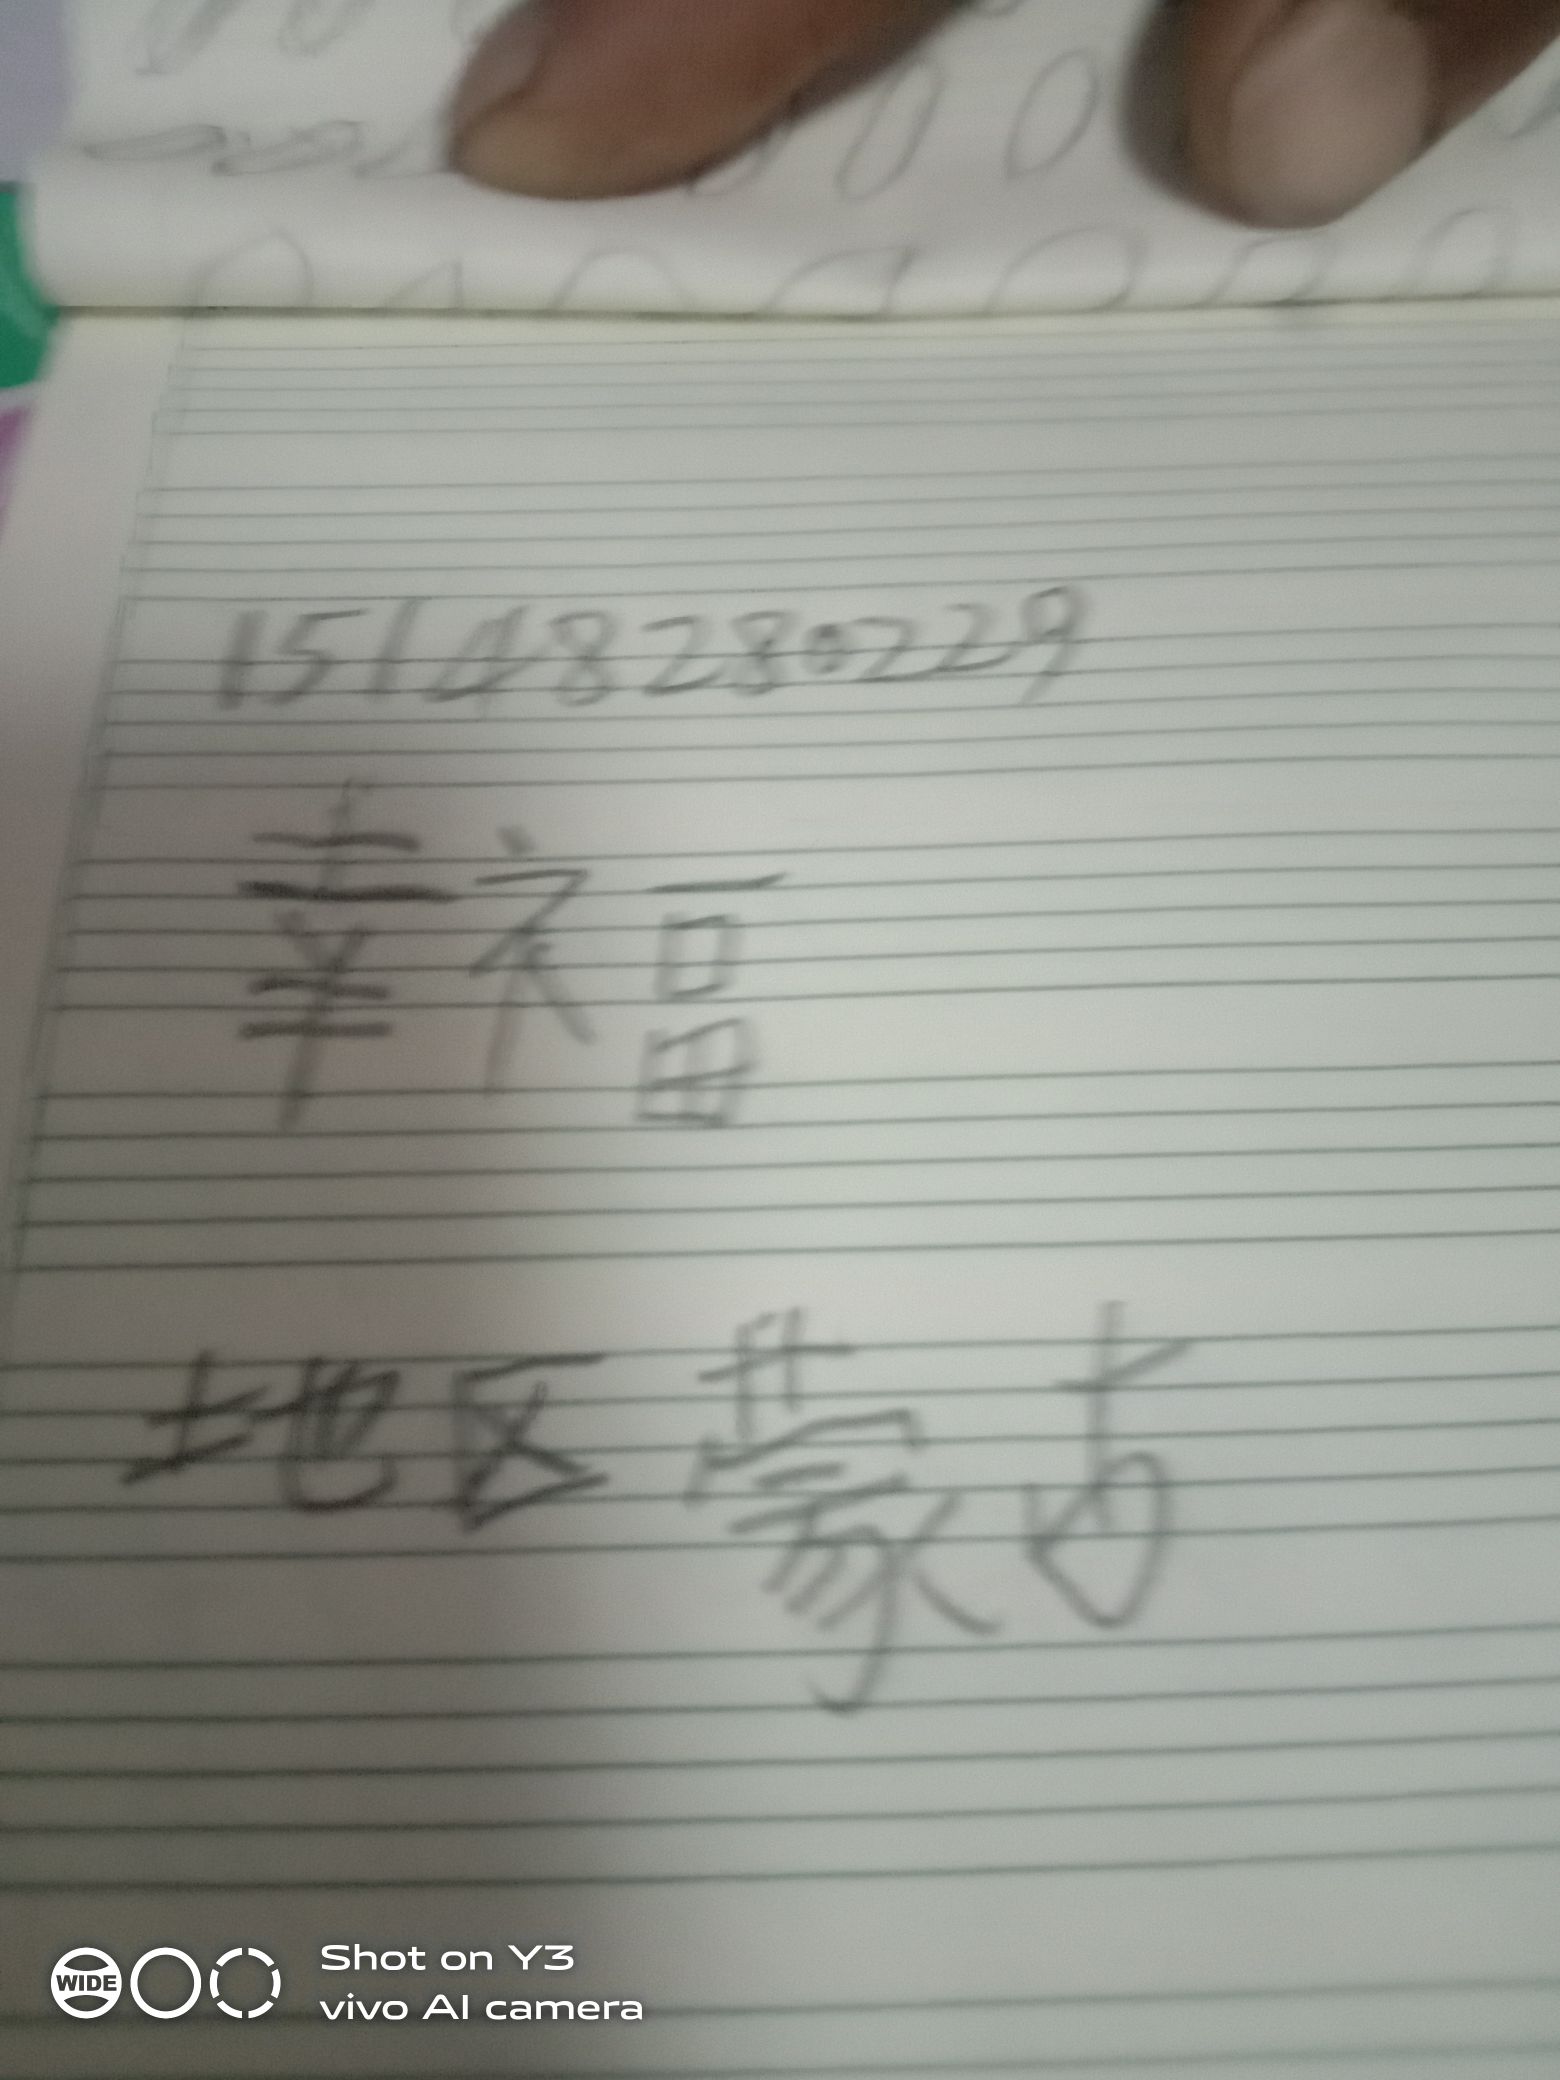 15148280229
幸福
地区蒙古
WIDE
Shot on Y3
vivo AI camera